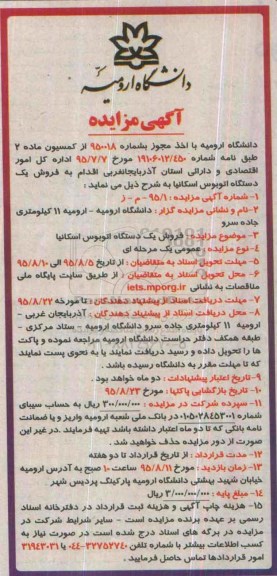 دانشگاه ارومیه
آگهی مزایده
دانشگاه ارومیه با اخذ مجوز بشماره ۹۵۰۰۱۸ از کمسیون ماده ۲
طبق نامه شماره ۱۹۱۰۶۰۱۲/۴۵۰ مورخ ۹۵/۷/۷ اداره کل امور
اقتصادی و دارائی استان آذربایجانغربی اقدام به فروش یک
دستگاه اتوبوس اسکانیا به شرح ذیل می نماید :
۱- شماره آگهی مزایده : ۹۵/۱ - م - ز
۲- نام و نشانی مزایده گزار : دانشگاه ارومیه - ارومیه ۱۱ کیلومتری
جاده سرو
۳- موضوع مزایده : فروش یک دستگاه اتوبوس اسکانیا
۴- نوع مزایده : عمومی یک مرحله ای
۵- مهلت تحویل اسناد به متقاضیان : از تاریخ ۹۵/۸/۵ الی ۹۵/۸/۱۰
۶- محل تحویل اسناد به متقاضیان : از طریق سایت پایگاه ملی
مناقصات به نشانی iets.mporg.ir
۷- مهلت دریافت اسناد از پیشنهاد دهندگان : تا مورخه ۹۵/۸/۲۲
۸- محل دریافت اسناد از پیشنهاد دهندگان : آذربایجان غربی -
ارومیه ۱۱ کیلومتری جاده سرو دانشگاه ارومیه - ستاد مرکزی -
طبقه همکف دفتر حراست دانشگاه ارومیه مراجعه نموده و پاکت
ها را تحویل داده و رسید دریافت نمایند یا به نحوی پست نمایند
که تا مهلت مقرر به دانشگاه رسیده باشد .
۹- تاریخ اعتبار پیشنهادات : دو ماه خواهد بود .
۱۰- تاریخ بازگشایی پاکتها : مورخ ۹۵/۸/۲۳
۱۱- سپرده شرکت در مزایده : ۳۰۰/۰۰۰/۰۰۰ ریال به حساب سیبای
شماره ۰۱۰۵۰۲۸۴۵۳۰۰۱ در بانک ملی شعبه ارومیه واریز و یا ضمانت
نامه بانکی که تا دو ماه اعتبار داشته باشد تهیه فرمایند .در غیر این
صورت از دور مزایده حذف خواهید شد .
۱۲- مدت قرارداد : از تاریخ قرارداد تا دو هفته
۱۳- زمان بازدید : مورخ ۹۵/۸/۱۱ ساعت ۱۰ صبح به آدرس ارومیه
خیابان شهید بهشتی دانشگاه ارومیه پارکینگ پردیس شهر
۱۴- مبلغ پایه : ۳/۰۰۰/۰۰۰/۰۰۰ ریال
۱۵- هزینه چاپ آگهی و هزینه ثبت قرارداد در دفترخانه اسناد
رسمی بر عهده برنده مزایده است - سایر شرایط شرکت در
مزایده در برگه های اسناد درج شده است در صورت نیاز به
کسب اطلاعات بیشتر با شماره تلفن ۳۲۷۵۲۷۴۰-۰۴۴ یا ۳۱۹۴۳۰۳۱
امور قراردادها تماس حاصل فرمایید .